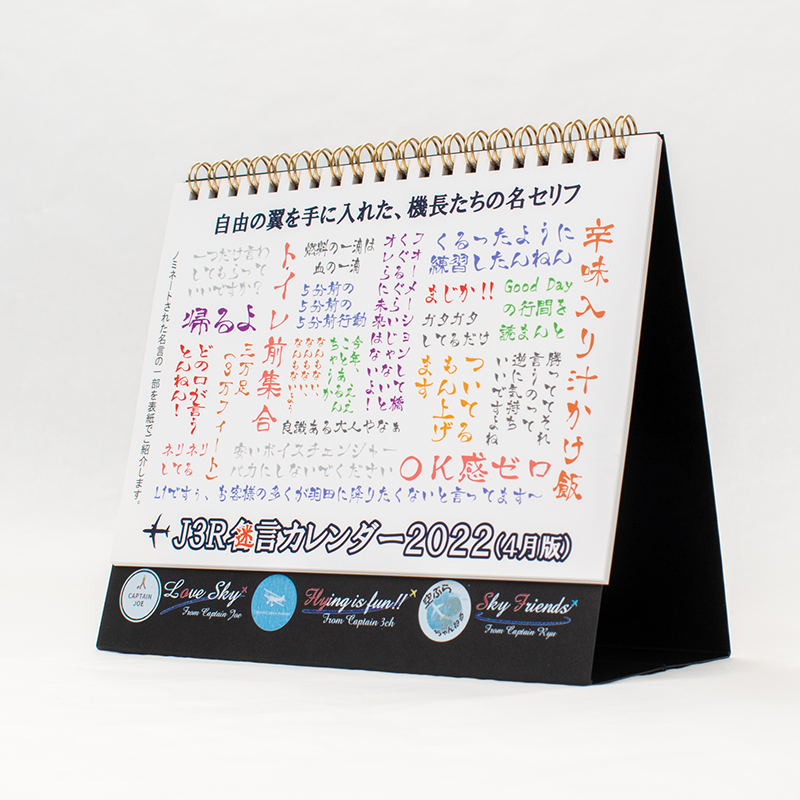 自由の翼を手に入れた、機長たちの名セリフ
ノミネートされた名言の一部を表紙でご紹介します。
一つだけ言わ
してもらって
いいですか?
トイレ前集合
燃料の一滴は
血の一滴
5分前の
5分前の
5分前行動
フォーメーションして橋
くぐるぐらいじゃないと
オレらに未来はないよ!
くるったように
練習したんねん
辛味入り汁かけ飯
帰るよ
まじか!!
ガタガタ
してるだけ
Good Day
の行間を
読まんと
どの口が言う
とんねん!
三万足
(3万フィート)
今年、ええ
ことあるんち
ゃうん
なんもない、
なんもない、
なんもない
ついてる
もん上げ
ます
勝ってそれ
言うのって
逆に気持ち
いいですよね
良識ある大人やなぁ
ネリネリ
してる
安いボイスチェンジャー
バカにしないでください
OK感ゼロ
L1ですぅ、お客様の多くが羽田に降りたくないと言ってます~
J3R迷言カレンダー2022(4月版)
CAPTAIN
JOE
Love Sky
From Captain Joe
Flying is fun!!
From Captain 3ch
空ぶら
ちゃんねる
Sky Friends
From Captain Ryu